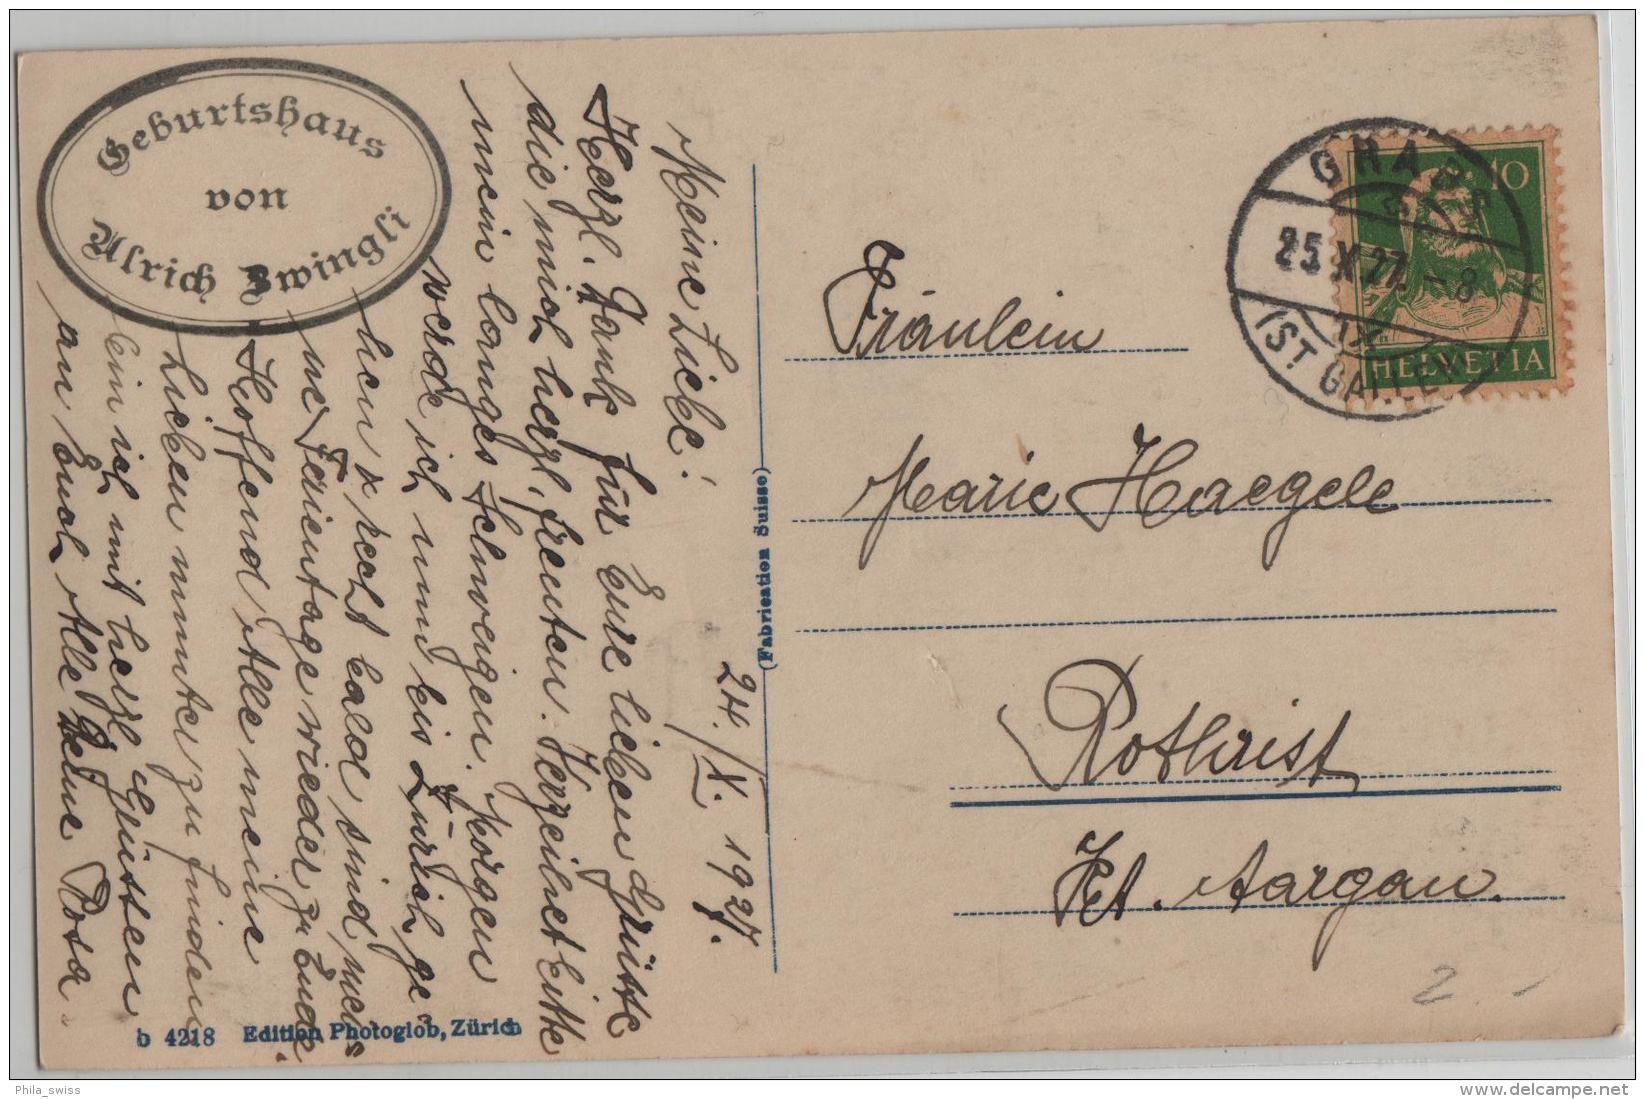 Geburtshaus
von
Ulrich Zwingli
24./X. 1927.
Meine Liebe!
Herzl. Dank für Eure lieben Grüsse
die mich herzl. freuten. Verzeihet bitte
mein langes Schweigen. Morgen
werde ich nund bis Zürich ge=
hen & recht bald sind mei=
ne Ferientage wieder zu Ende.
Hoffend Alle meine
Lieben munter zu finden
bin ich mit herzl. Grüssen
an Euch Alle Deine Rosa.
b 4218 Edition Photoglob, Zürich
(Fabrication Suisse)
GRABS
25.X.27. – 8
(ST. GALLEN)
10
HELVETIA
Fräulein
Marie Haegele
Rothrist
Kt. Aargau.
2.-
Phila_swiss
delcampe.net